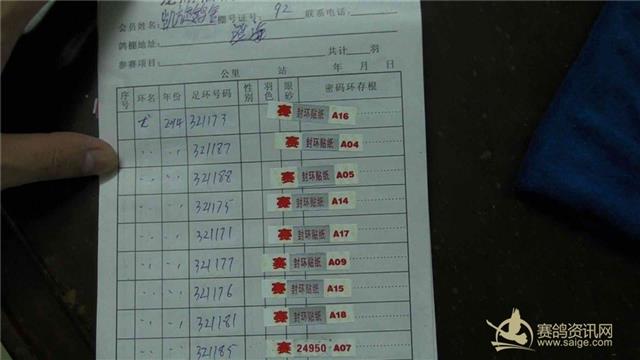 会员姓名: 凯旋鸽舍 棚号证号: 92 联系电话:
鸽棚地址:
参赛项目: 共计 羽
公里 站 年 月 日
序号 环名 年份 足环号码 性别 羽色 眼砂 密码环存根
214 321173 赛 封环贴纸 A16
321187 赛 封环贴纸 A04
321188 赛 封环贴纸 A05
321175 赛 封环贴纸 A14
321171 赛 封环贴纸 A17
321177 赛 封环贴纸 A09
321176 赛 封环贴纸 A15
321181 赛 封环贴纸 A18
321185 赛 24950 A07
赛鸽资讯网
www.saige.com